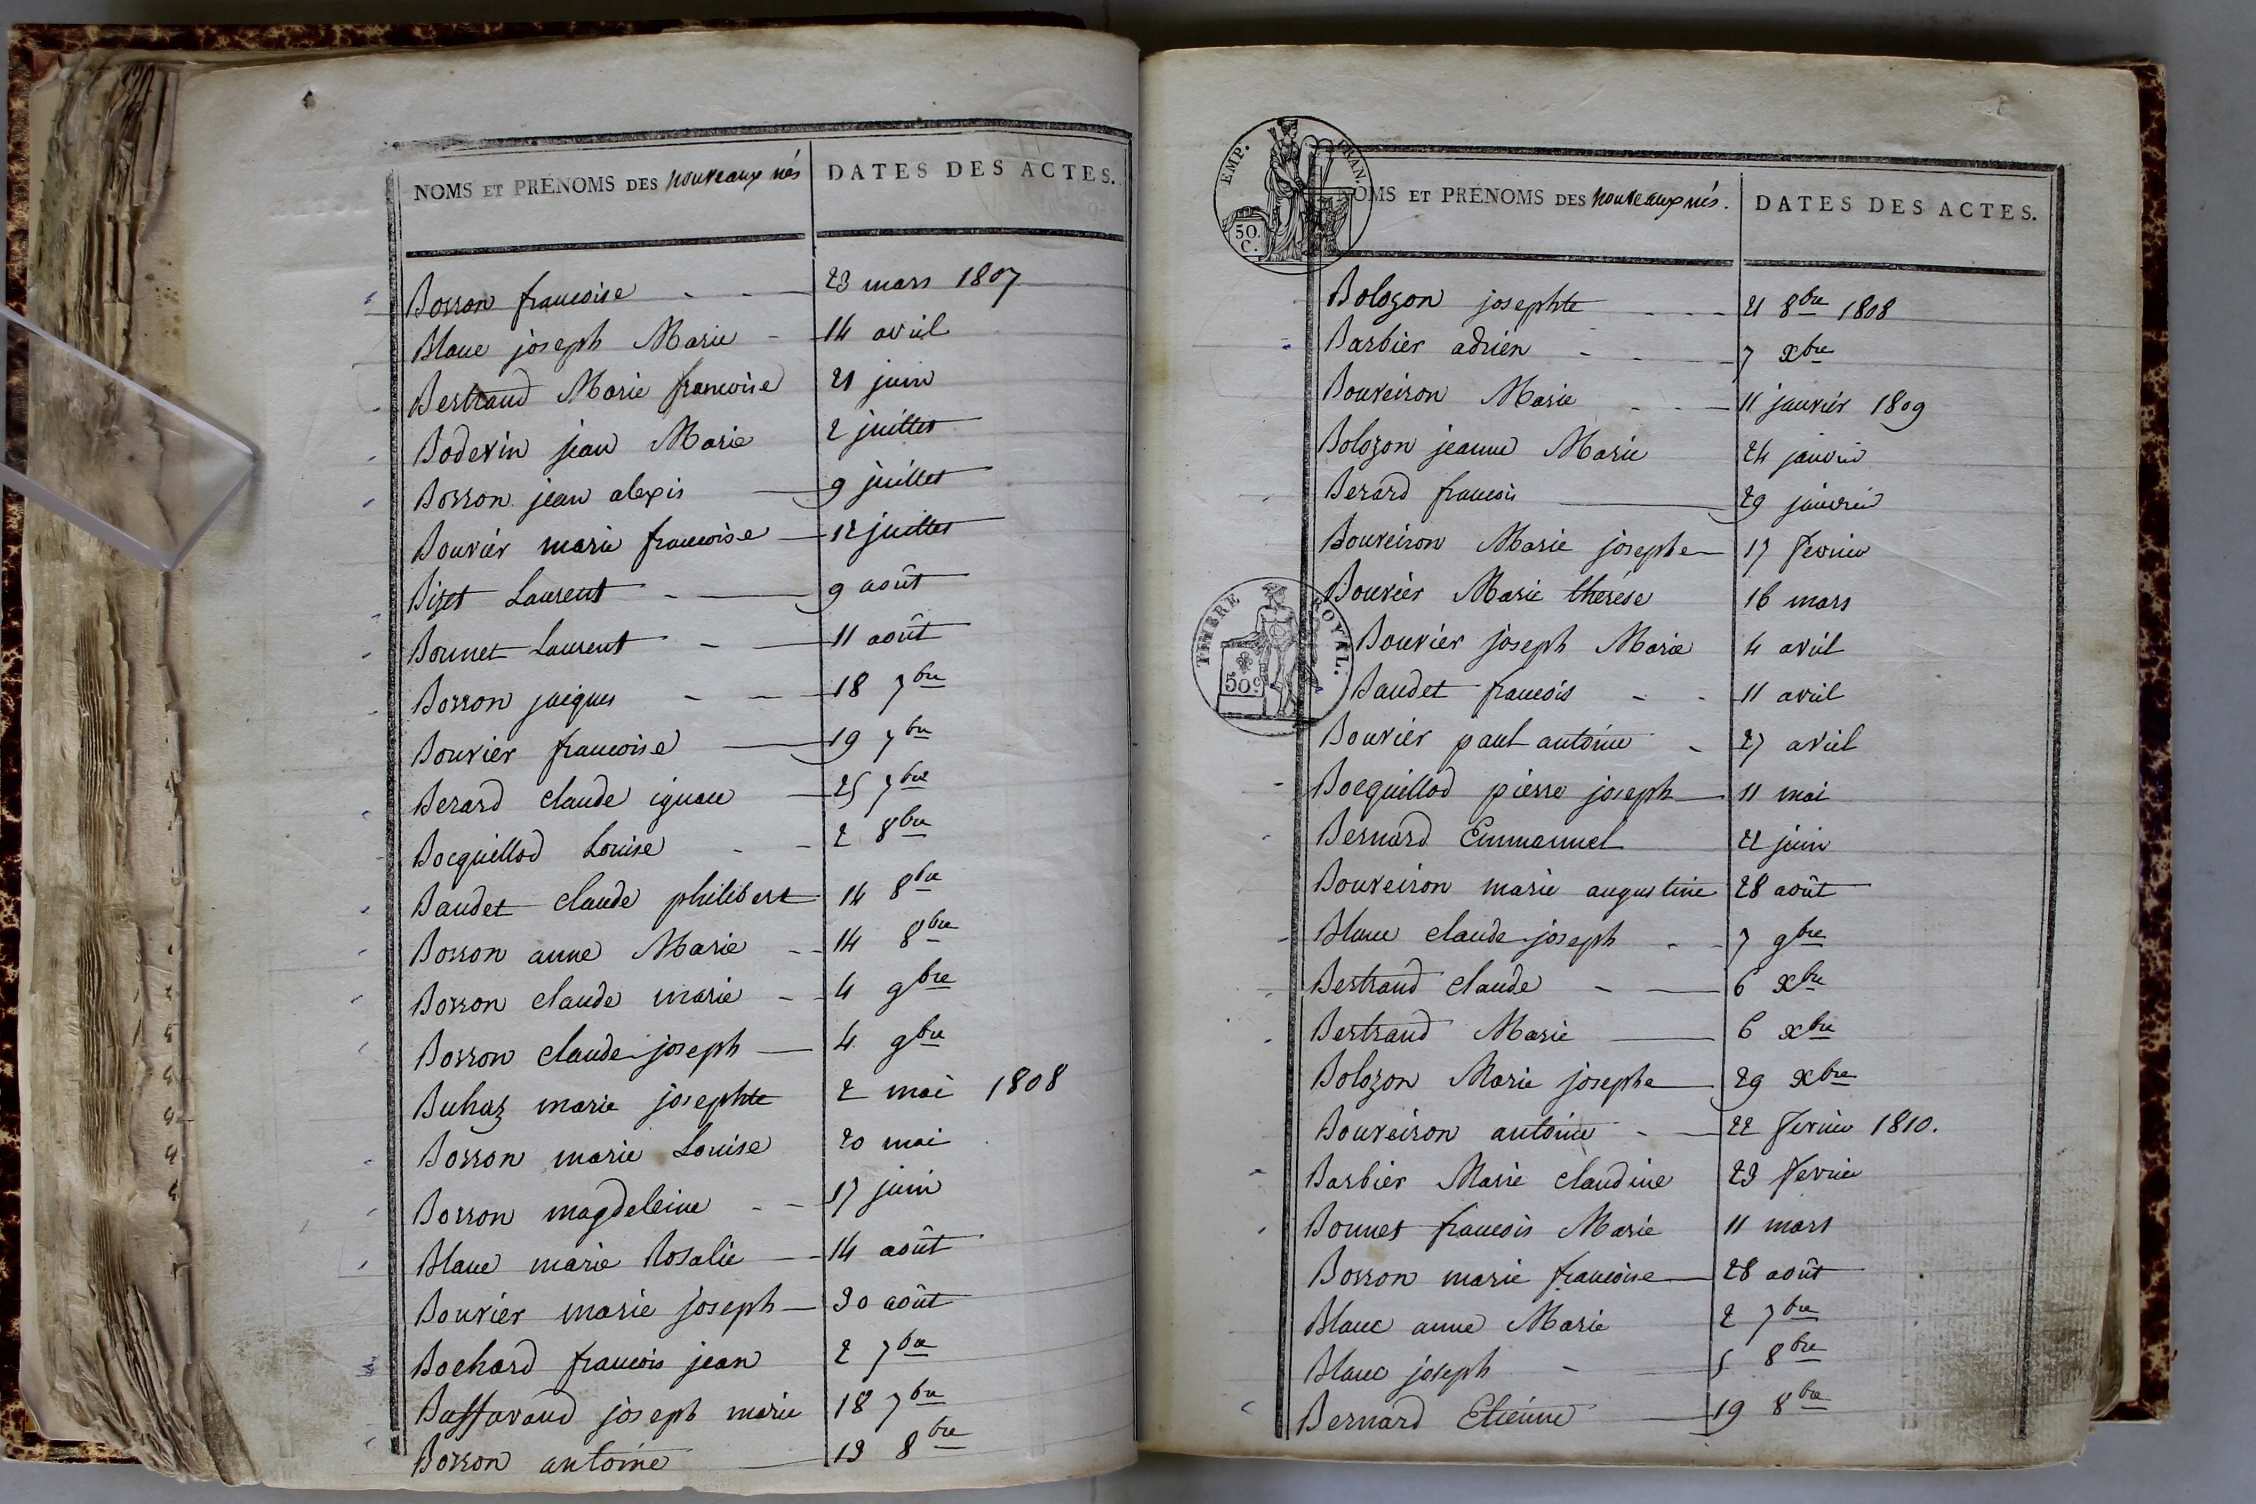 NOMS ET PRÉNOMS DES nouveaux nés DATES DES ACTES.
Bosson francoise 23 mars 1807
Blanc joseph Marie 14 avril
Bertrand Marie francoise 21 juin
Bodevin jean Marie 2 juillet
Bosson jean alexis 9 juillet
Bouvier marie francoise 12 juillet
Bizet Laurent 9 août
Bonnet Laurent 11 août
Bosson jacques 18 7bre
Bouvier francoise 19 7bre
Berard claude ignace 25 7bre
Bocquillod Louise 2 8bre
Baudet claude philibert 14 8bre
Bosson anne Marie 14 8bre
Bosson claude marie 4 9bre
Bosson claude joseph 4 9bre
Buhaz marie josephte 2 mai 1808
Bosson marie Louise 20 mai
Bosson magdeleine 17 juin
Blanc marie Rosalie 14 août
Bouvier marie joseph 30 août
Bochard francois jean 2 7bre
Baffavaud joseph marie 18 7bre
Bosson antoine 13 8bre
EMP. FRAN.
50. C.
NOMS ET PRÉNOMS DES nouveaux nés. DATES DES ACTES.
Bolozon josephte 21 8bre 1808
Barbier adrien 7 xbre
Bouveiron Marie 11 janvier 1809
Bolozon jeanne Marie 24 janvier
Berard francois 29 janvier
Bouveiron Marie josephe 17 fevrier
Bouvier Marie thérèse 16 mars
TIMBRE ROYAL.
50c
Bouvier joseph Marie 4 avril
Baudet francois 11 avril
Bouvier paul antoine 27 avril
Bocquillod pierre joseph 11 mai
Bernard Emmanuel 22 juin
Bouveiron marie augustine 28 août
Blanc claude joseph 7 9bre
Bertrand claude 6 xbre
Bertrand Marie 6 xbre
Bolozon Marie josephe 29 xbre
Bouveiron antoine 22 fevrier 1810.
Barbier Marie claudine 23 fevrier
Bonnet francois Marie 11 mars
Bosson marie francoise 28 août
Blanc anne Marie 2 7bre
Blanc joseph 5 8bre
Bernard Etienne 19 8bre